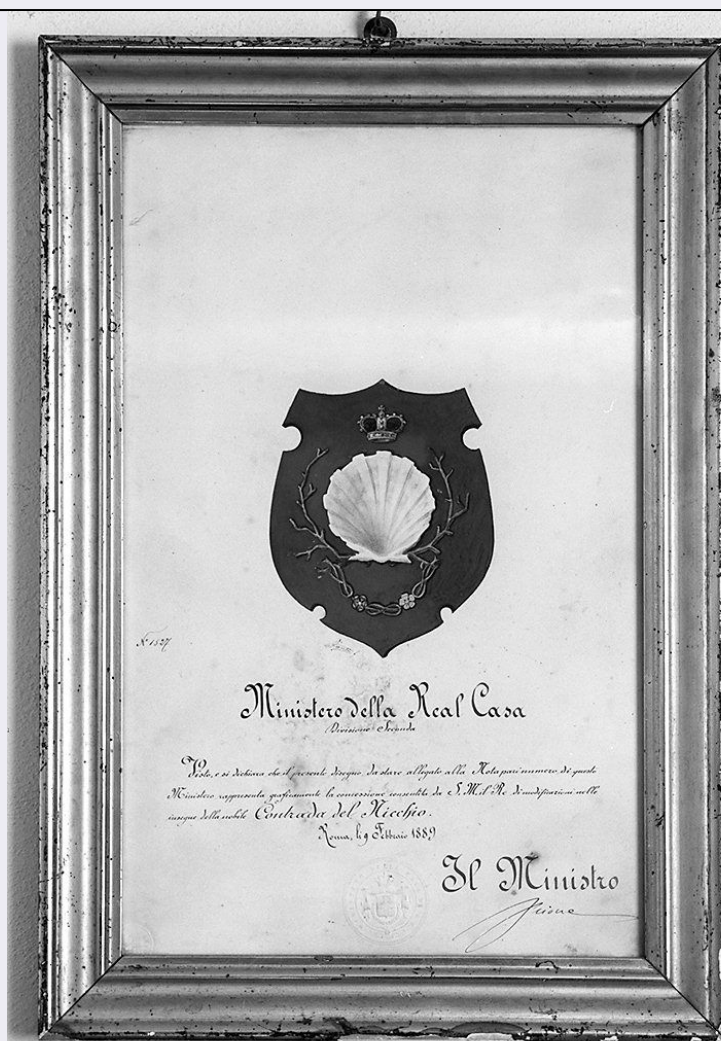 N. 1527
Ministero della Real Casa
Divisione Seconda
Visto, e si dichiara che il presente disegno, da stare allegato alla Nota pari numero, di questo
Ministero, rappresenta graficamente la concessione consentita da S. M. il Re di modificazioni nelle
insegne della nobile Contrada del Nicchio.
Roma, li 9 Febbraio 1889
Il Ministro